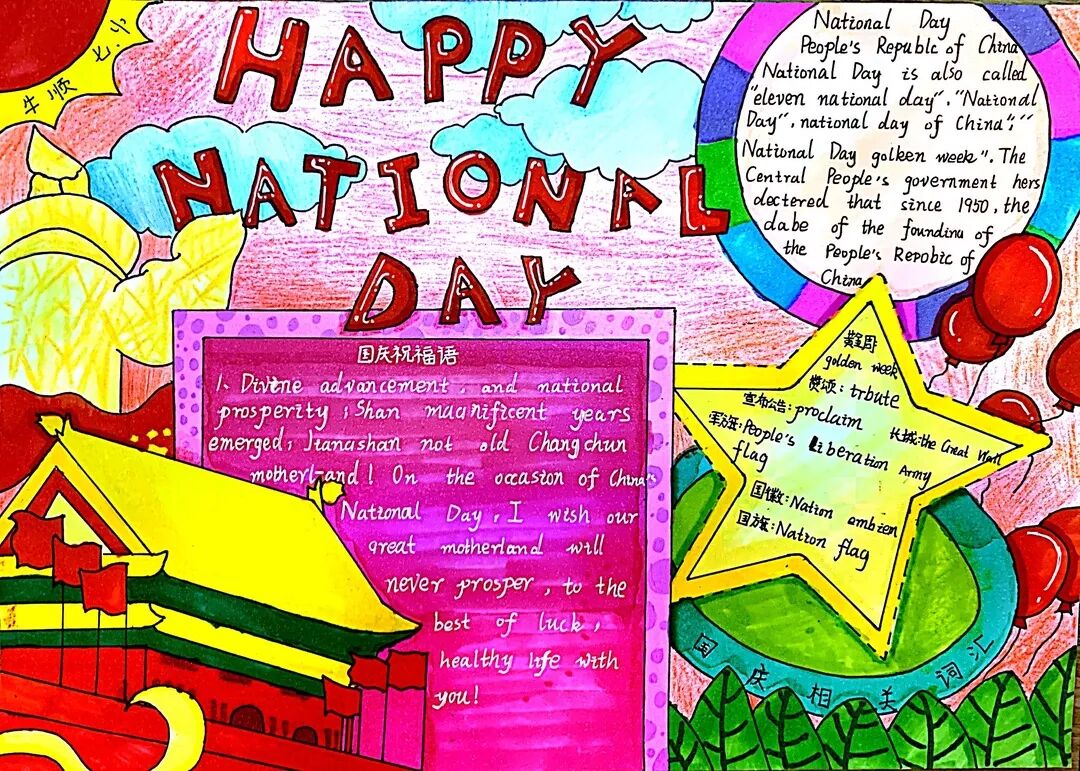 HAPPY
NATIONAL
DAY
牛顺 七.小
National Day
People's Republc of China
National Day is also called
"eleven national day"."National
Day", national day of China";"
National Day golken week". The
Central People's government hers
dectered that since 1950, the
dabe of the foundinu of
the People's Repobic of
China
国庆祝福语
1、Divene advancement, and national
prosperity ; Shan magnificent years
emerged; Jtanashan not old Changchun
motherland! On the occasion of China's
National Day, I wish our
great motherland will
never prosper, to the
best of luck,
healthy life with
you!
黄金周
golden week
赞颂: trbute
宣布公告: proclaim
长城:the Great Wall
军旗:People's Liberation Army
flag
国徽:Nation embien
国旗:Natron flag
国庆相关词汇